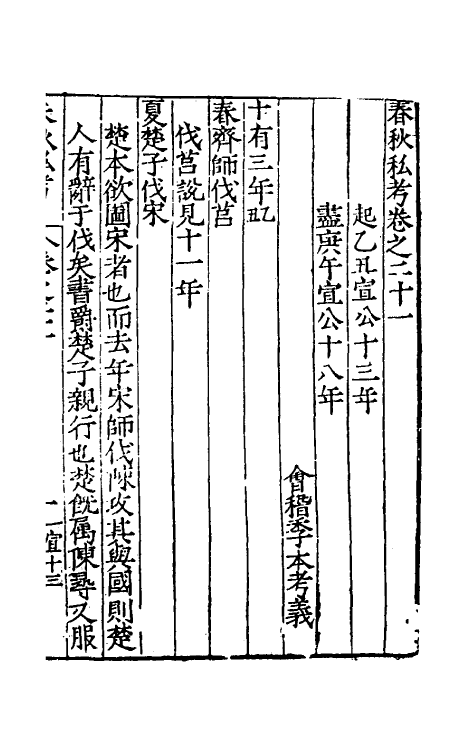 春秋私考卷之二十一
起乙丑宣公十三年
盡庚午宣公十八年
會稽季本考義
十有三年乙丑
春齊師伐莒
伐莒說見十一年
夏楚子伐宋
楚本欲圖宋者也而去年宋師伐陳攻其與國則楚
人有辭于伐矣書爵楚子親行也楚旣屬陳尋又服
二宣十三